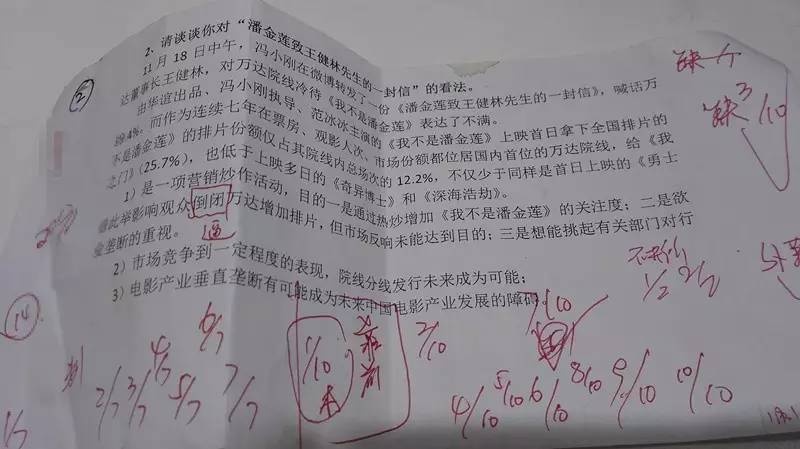 2、请谈谈你对“潘金莲致王健林先生的一封信”的看法。
11 月 18 日中午，冯小刚在微博转发了一份《潘金莲致王健林先生的一封信》，喊话万
达董事长王健林，对万达院线冷待《我不是潘金莲》表达了不满。
由华谊出品、冯小刚执导、范冰冰主演的《我不是潘金莲》上映首日拿下全国排片的
39.4%。而作为连续七年在票房、观影人次、市场份额都位居国内首位的万达院线，给《我
不是潘金莲》的排片份额仅占其院线内总场次的 12.2%，不仅少于同样是首日上映的《勇士
之门》(25.7%)，也低于上映多日的《奇异博士》和《深海浩劫》。
1）是一项营销炒作活动，目的一是通过热炒增加《我不是潘金莲》的关注度；二是欲
借此举影响观众倒闭万达增加排片，但市场反响未能达到目的；三是想能挑起有关部门对行
业垄断的重视。
2）市场竞争到一定程度的表现，院线分线发行未来成为可能；
3）电影产业垂直垄断有可能成为未来中国电影产业发展的障碍
2
逼
14
缺 3/10
1/2 2/2
6/7
4/7
2/7 3/7 5/7 7/7
1/7
1/10
2/10
4/10 5/10 6/10 8/10 9/10 10/10